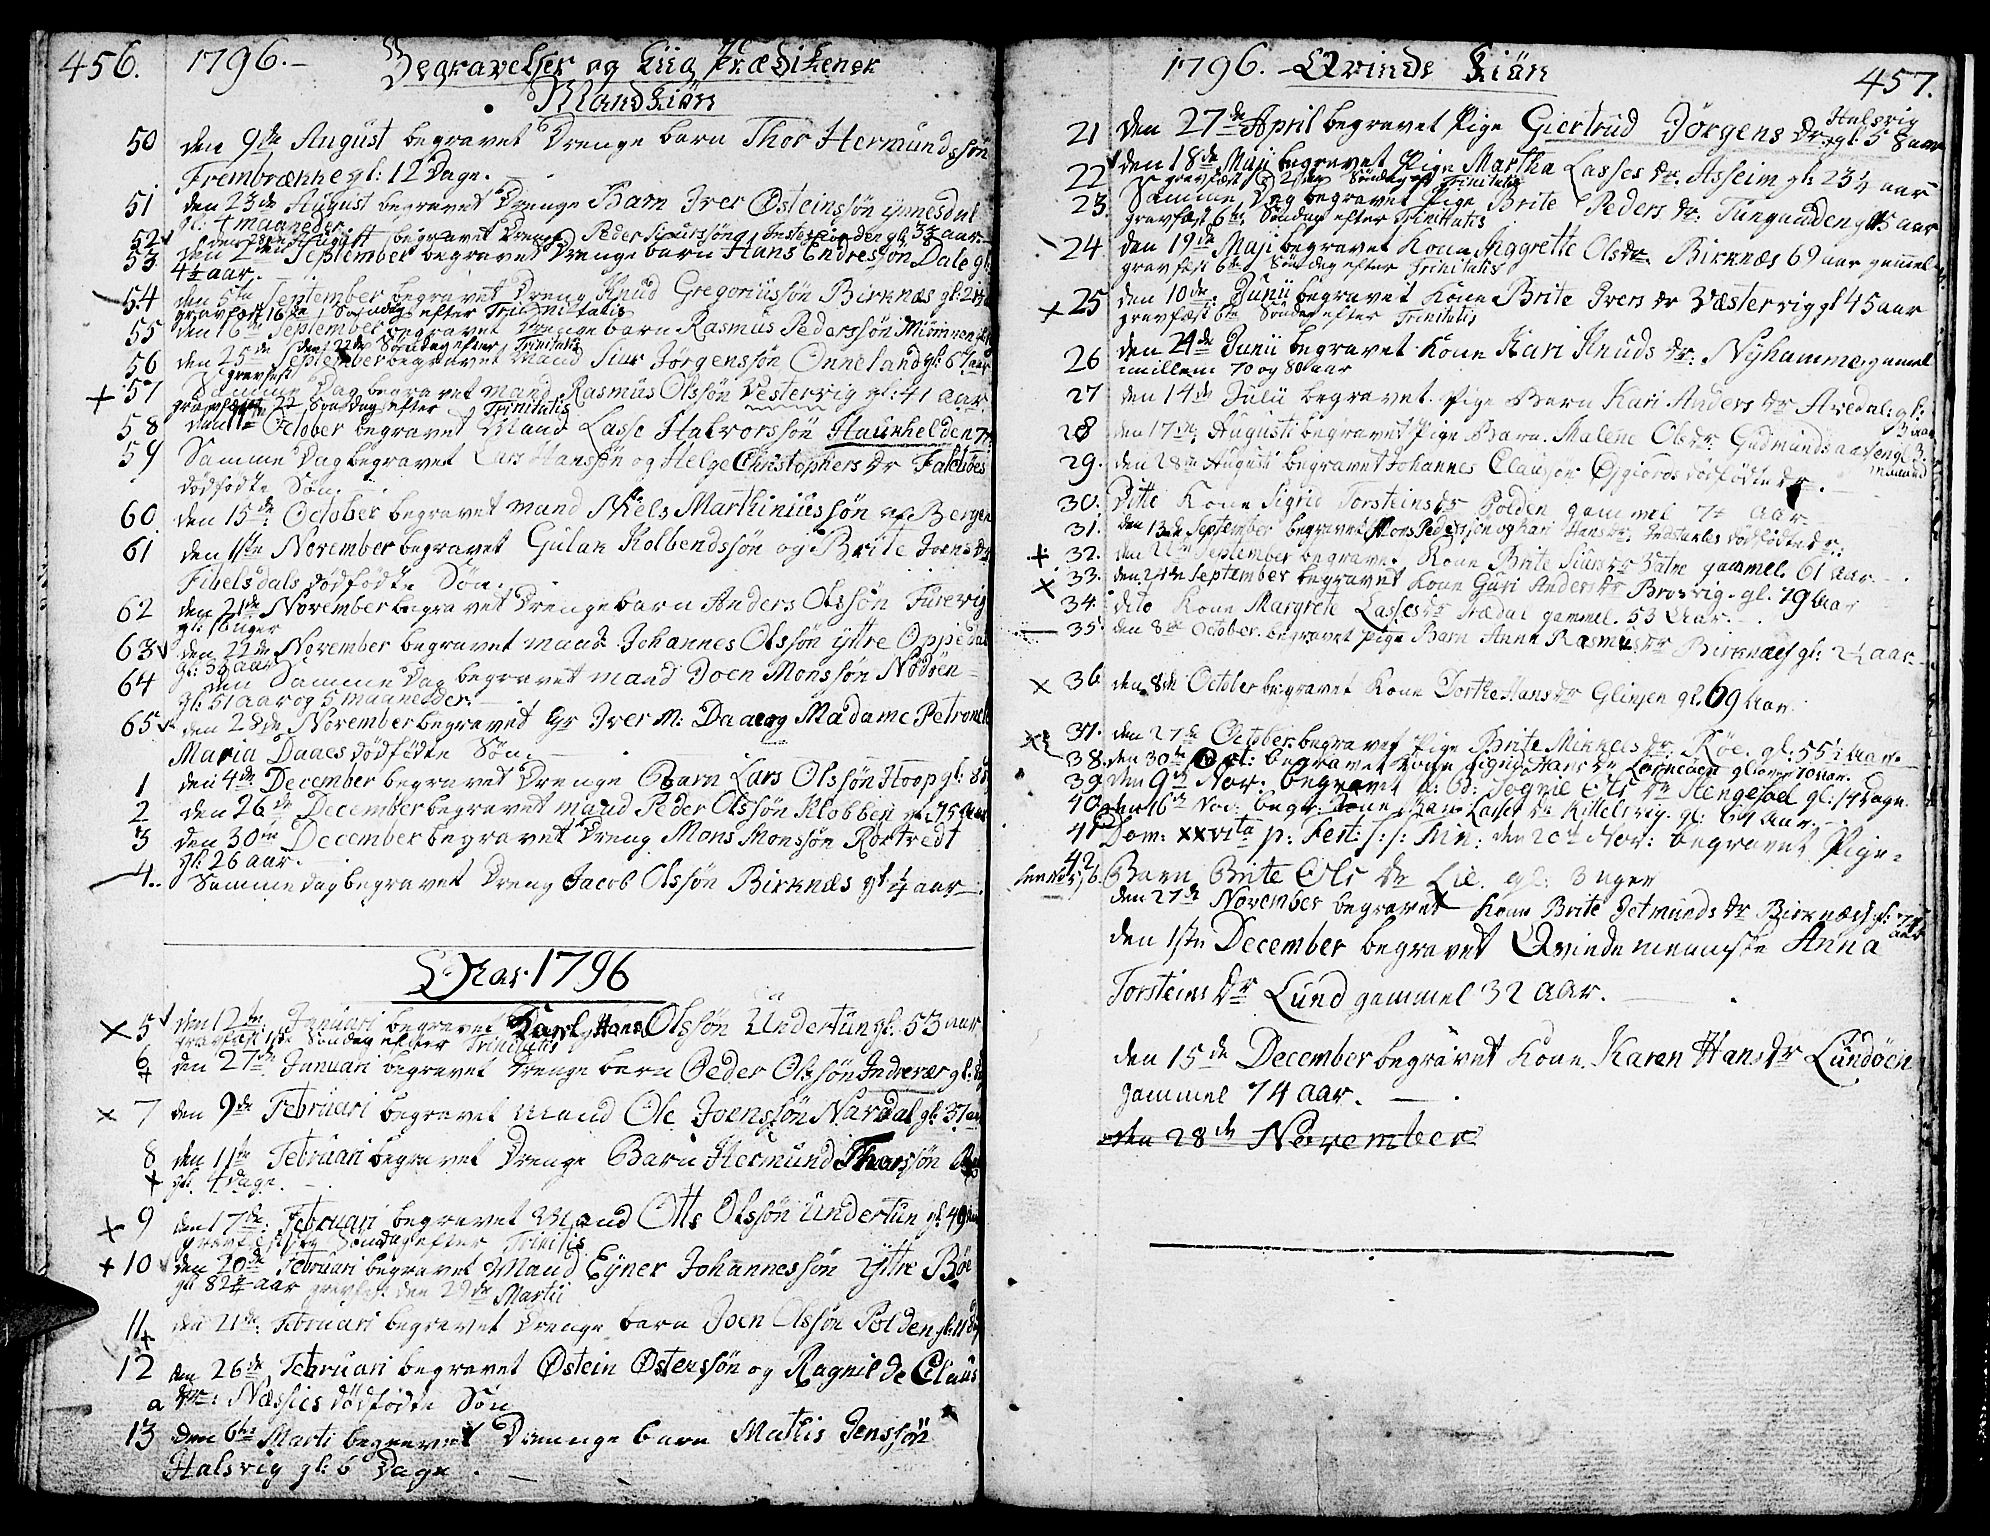 456. 1796.- Begravelser og Liig Prædikener
Mandkiön
50 den 9de August begravet Drenge barn Thor Hermundssön
Frembrække gl: 12 Dage.
51 den 23de August begravet Drenge Barn Iver Østeinssön ijnnesdal
gl: 4 maaneder.
52 August begravet Dreng Peder Siurssön gl: 3½ aar
53 den 2den September begravet Drenge barn Hans Endressön Dale gl:
4½ aar.
54 den 5te September begravet Dreng Knud Gregoriussön Birknæs gl:
gravfæst 16de Söndag efter Trinitatis
55 den 16de September begravet Drenge barn Rasmus Pederssön
22de Söndag efter Trinitatis
56 den 25de September begravet Mand Siur Jörgenssön Onneland gl: 67 aar
gravfæst
+ 57 Samme Dag begravet mand Rasmus Olssön Vestervig gl: 41 aar
22 Söndag efter Trinitatis
58 October begravet Mand Lasse Halvorssön Haünhelden
59 Samme Dag begravet Lars Hanssön og Helge Christophers dr
dödfödte Sön.
60 den 15de October begravet mand Niels Marthinussön af Bergen
61 den 1ste November begravet Gulak Kolbendssön og Brite Joens dr
Fibelsdals dödfödte Sön.
62 den 21de November begravet Drenge barn Anders Olssön Fürevig
gl: uger
63 den 22de November begravet mand Johannes Olssön ÿttre Oppedal
gl: 36 aar
64 den Samme Dag begravet mand Joen Monssön Nödsen
gl: 51 aar og 5 maaneder.
65 den 28de November begravet Hr Iver M: Daae og Madame Petronelle
Maria Daaes dödfödte Sön.
1 den 4de December begravet Drenge Barn Lars Olssön Hoop gl:
2 den 26de December begravet mand Peder Olssön Klobben gl: 75 Aar
3 den 30te December begravet Dreng Mons Monssön Rortvedt
gl: 26 aar.
4. Samme dag begravet Dreng Jacob Olssön Birknæs gl ¼ aar
Aar 1796
x 5 den 12te Januari begravet Karl Hans Olssön Undertun gl: 53 aar
gravfæst 1ste Söndag efter Trinitatis
6 den 27de Januari begravet Drenge barn Peder Olssön Indrevær gl:
x 7 den 9de Februari begravet mand Ole Joenssön Nardal gl: 37 aar
8 den 11te Februari begravet Drenge Barn Hermund Thorssön
+ gl: 4 Dage.
x 9 den 17de Februari begravet Mand Otte Olssön Undertun gl: 49
gravfæst Söndag efter Trinitis
+ 10 den 20de Februari begravet Mand Eÿner Johannessön ÿttre Böe
gl: 82¼ aar gravfæst den 29de Martii
11 den 21de Februari begravet Drenge barn Joen Olssön Polden gl: 11 dag
+
12 den 26de Februari begravet Østein Østenssön og Ragnilde Claus
a dr: Næssies dödfödte Sön
13 den 6te Marti begravet Drenge barn Mathis Jenssön
Halsvig gl: 6 Dage.
1796. Qvinde Kiön 457.
21 den 27de April begravet Pige Giertrud Jörgens dr: Halsvig gl: 58 aar
22 den 18de Maji begravet Pige Martha Lasses dr: Asseim gl: 23½ aar
gravfæst 2den Söndag ef Trinitatis
23. Samme Dag begravet Pige Brite Peders dr: Tungaaden gl: 15 aar
gravfæst 6te Söndag efter Trinitatis
24 den 19de Maji begravet Kone Aggrette Ols dr: Birknæs 69 aar gamel
gravfæst 6te Söndag efter Trinitatis
x 25 den 10de: Junii begravet Kone Brite Ivers dr Væstervig gl 45 aar
gravfæst 6te Söndag efter Trinitatis
26 den 24de Junii begravet Kone Kari Knuds dr: Nÿhamme, gamel
imellem 70 og 80 aar
27 den 14de Julii begravet Pige Barn Kari Anders dr Avedal: gl:
28 den 17de Augusti begravet Pige Barn. Malene Ols dr: Gudmunds gl 3
29. den 28de Augusti begravet Johannes Clausön dödfödte dr. maaned
30. Ditto Kone Sigrid Torsteins dr Polden gammel 74 aar
31. den 13de September begravet Mons Pedersön og Kari Hans dr. dödfödte dr:
+ 32. den September begravet Kone Brite Siurs dr Vatne gammel. 61 Aar.
x 33. den 24de September begravet Kone Guri Anders dr Brosvig. gl. 79 Aar
34. dito Kone Margrete Lasses dr gammel. 53 Aar.
35. den 8de October begravet Pige Barn Anne Rasmus dr Birknæs gl: 2½ aar.
x 36 den 8de October begravet Kone Dorthe Hans dr Glinjen gl. 69 Aar.
37. den 27de October begravet Pige Brite Mikkels dr. Röe. gl: 55½ Aar.
38. den 30te Oct: begravet Kone Signi Hans dr gl: over 70 aar.
39. den 9de Nov: begravet Ols dr Stengesæl gl: 14 Dage.
40. den 16de Nov: begr: Kone Lasses dr Kittelsvig. gl: 64 aar.
41 Dom: xxvita p: Fest: s: s: Trin: den 20de Nov: begravet Pige-
42. Barn Brite Ols dr Lie. gl: 3 uger
den 27de November begravet Kone Brite Jetmunds dr Birknæs gl: 74 aar
den 1ste December begravet Qvindemenniske Anna
Torsteins dr Lund gammel 32 Aar.
den 15de December begravet Kone Karen Hans dr Lundöen
gammel 74 aar.
den 28de November